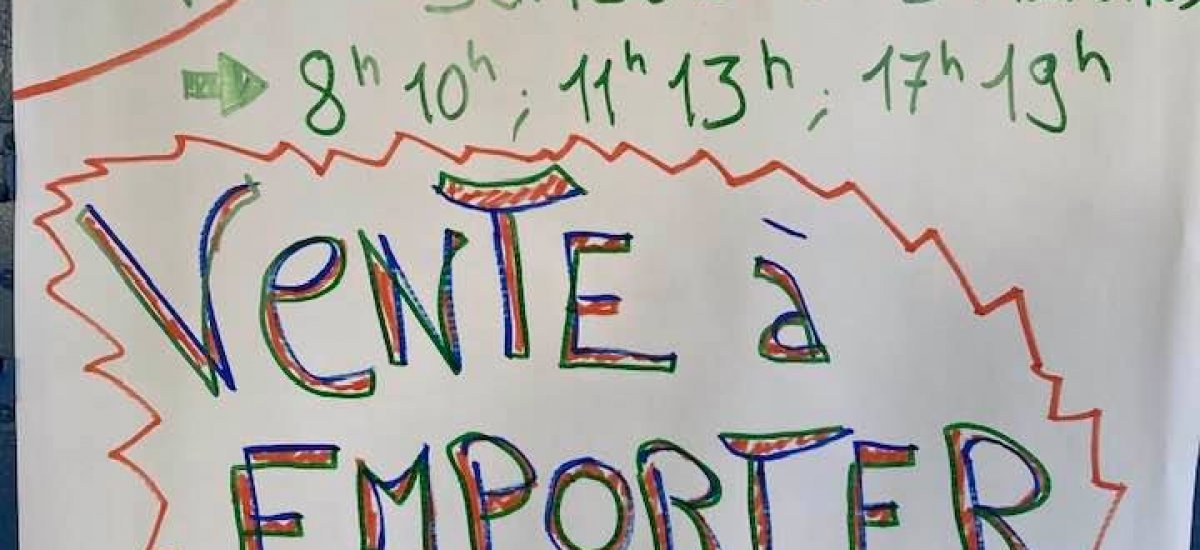 8h 10h ; 11h 13h ; 17h 19h
VeNTE à
EMPORTER